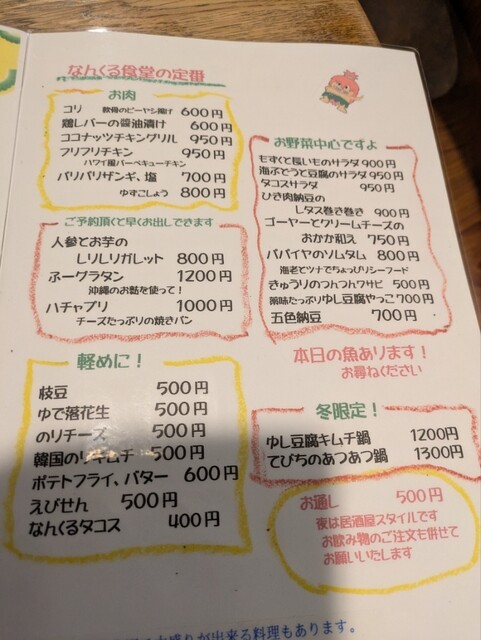 なんくる食堂の定番
お肉
コリ 軟骨のビーヤシ揚げ 600円
鶏レバーの醤油漬け 600円
ココナッツチキングリル 950円
フリフリチキン 950円
ハワイ風バーベキューチキン
パリパリザンギ、塩 700円
ゆずこしょう 800円
ご予約頂くと早くお出しできます
人参とお芋の
しりしりガレット 800円
ふーグラタン 1200円
沖縄のお麩を使って!
ハチャプリ 1000円
チーズたっぷりの焼きパン
軽めに!
枝豆 500円
ゆで落花生 500円
のりチーズ 500円
韓国のりキムチ 500円
ポテトフライ、バター 600円
えびせん 500円
なんくるタコス 400円
お野菜中心ですよ
もずくと長いものサラダ 900円
海ぶどうと豆腐のサラダ 950円
タコスサラダ 950円
ひき肉納豆の
レタス巻き巻き 900円
ゴーヤーとクリームチーズの
おかか和え 750円
パパイヤのソムタム 800円
海老とツナでちょっぴりシーフード
きゅうりのつんつんワサビ 500円
薬味たっぷりゆし豆腐やっこ 700円
五色納豆 700円
本日の魚あります!
お尋ねください
冬限定!
ゆし豆腐キムチ鍋 1200円
てびちのあつあつ鍋 1300円
お通し 500円
夜は居酒屋スタイルです
お飲み物のご注文も併せて
お願いいたします
盛りが出来る料理もあります。